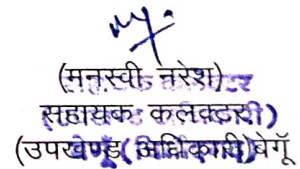 (मनस्वी नरेश)
सहायक कलक्टर
(उपखण्ड अधिकारी) बेगूँ